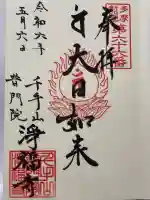 奉拝
多摩
第六十六番
大日如来
千手山
浄福寺
普門院
令和六年
五月六日